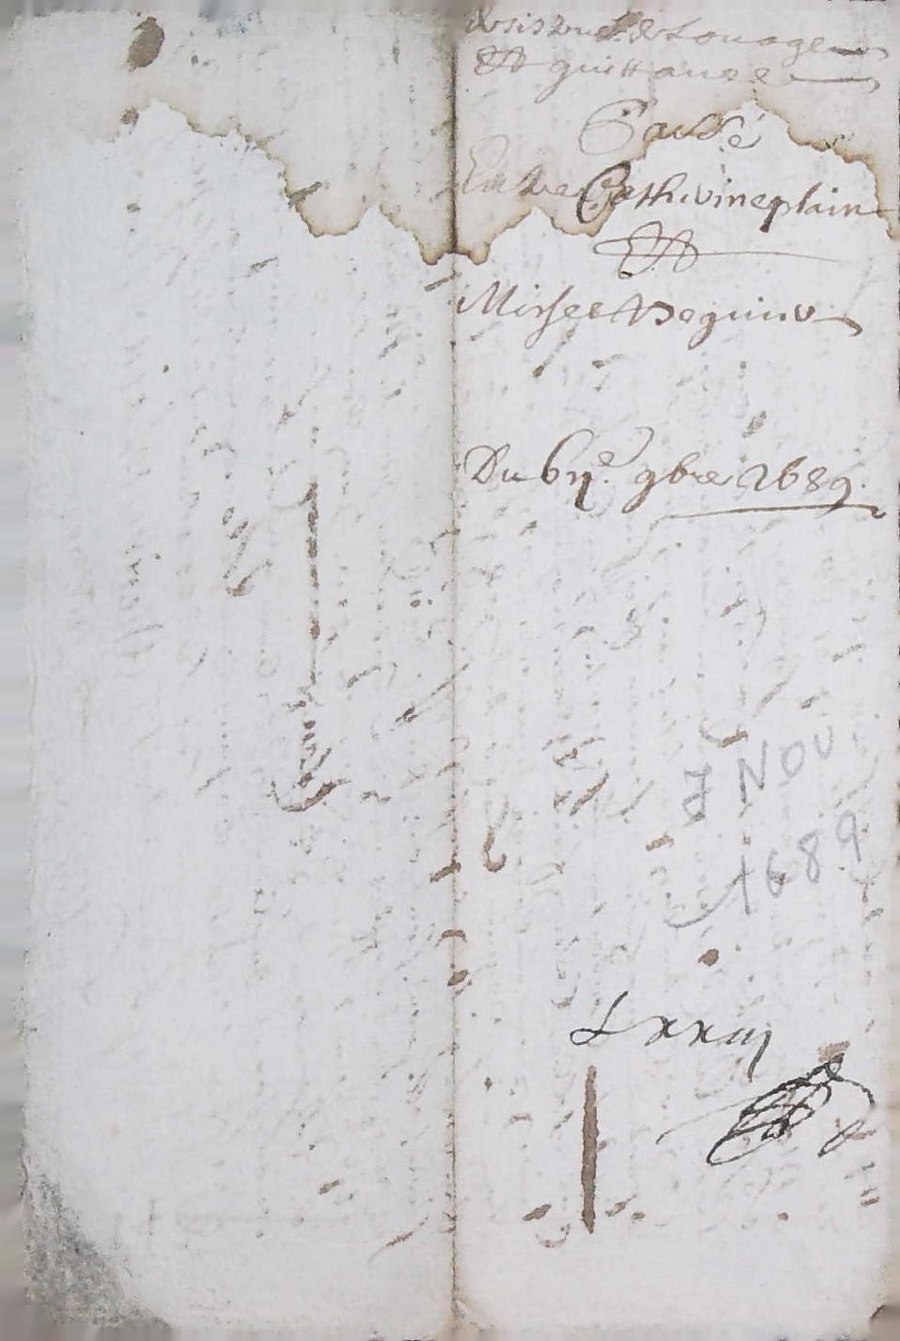 de Louage
Et quittance
Passé
Entre Catherine plain
Et
Michel Beguin
Du 6 9bre 1689.
7 Nov.
1689
Lxxiij